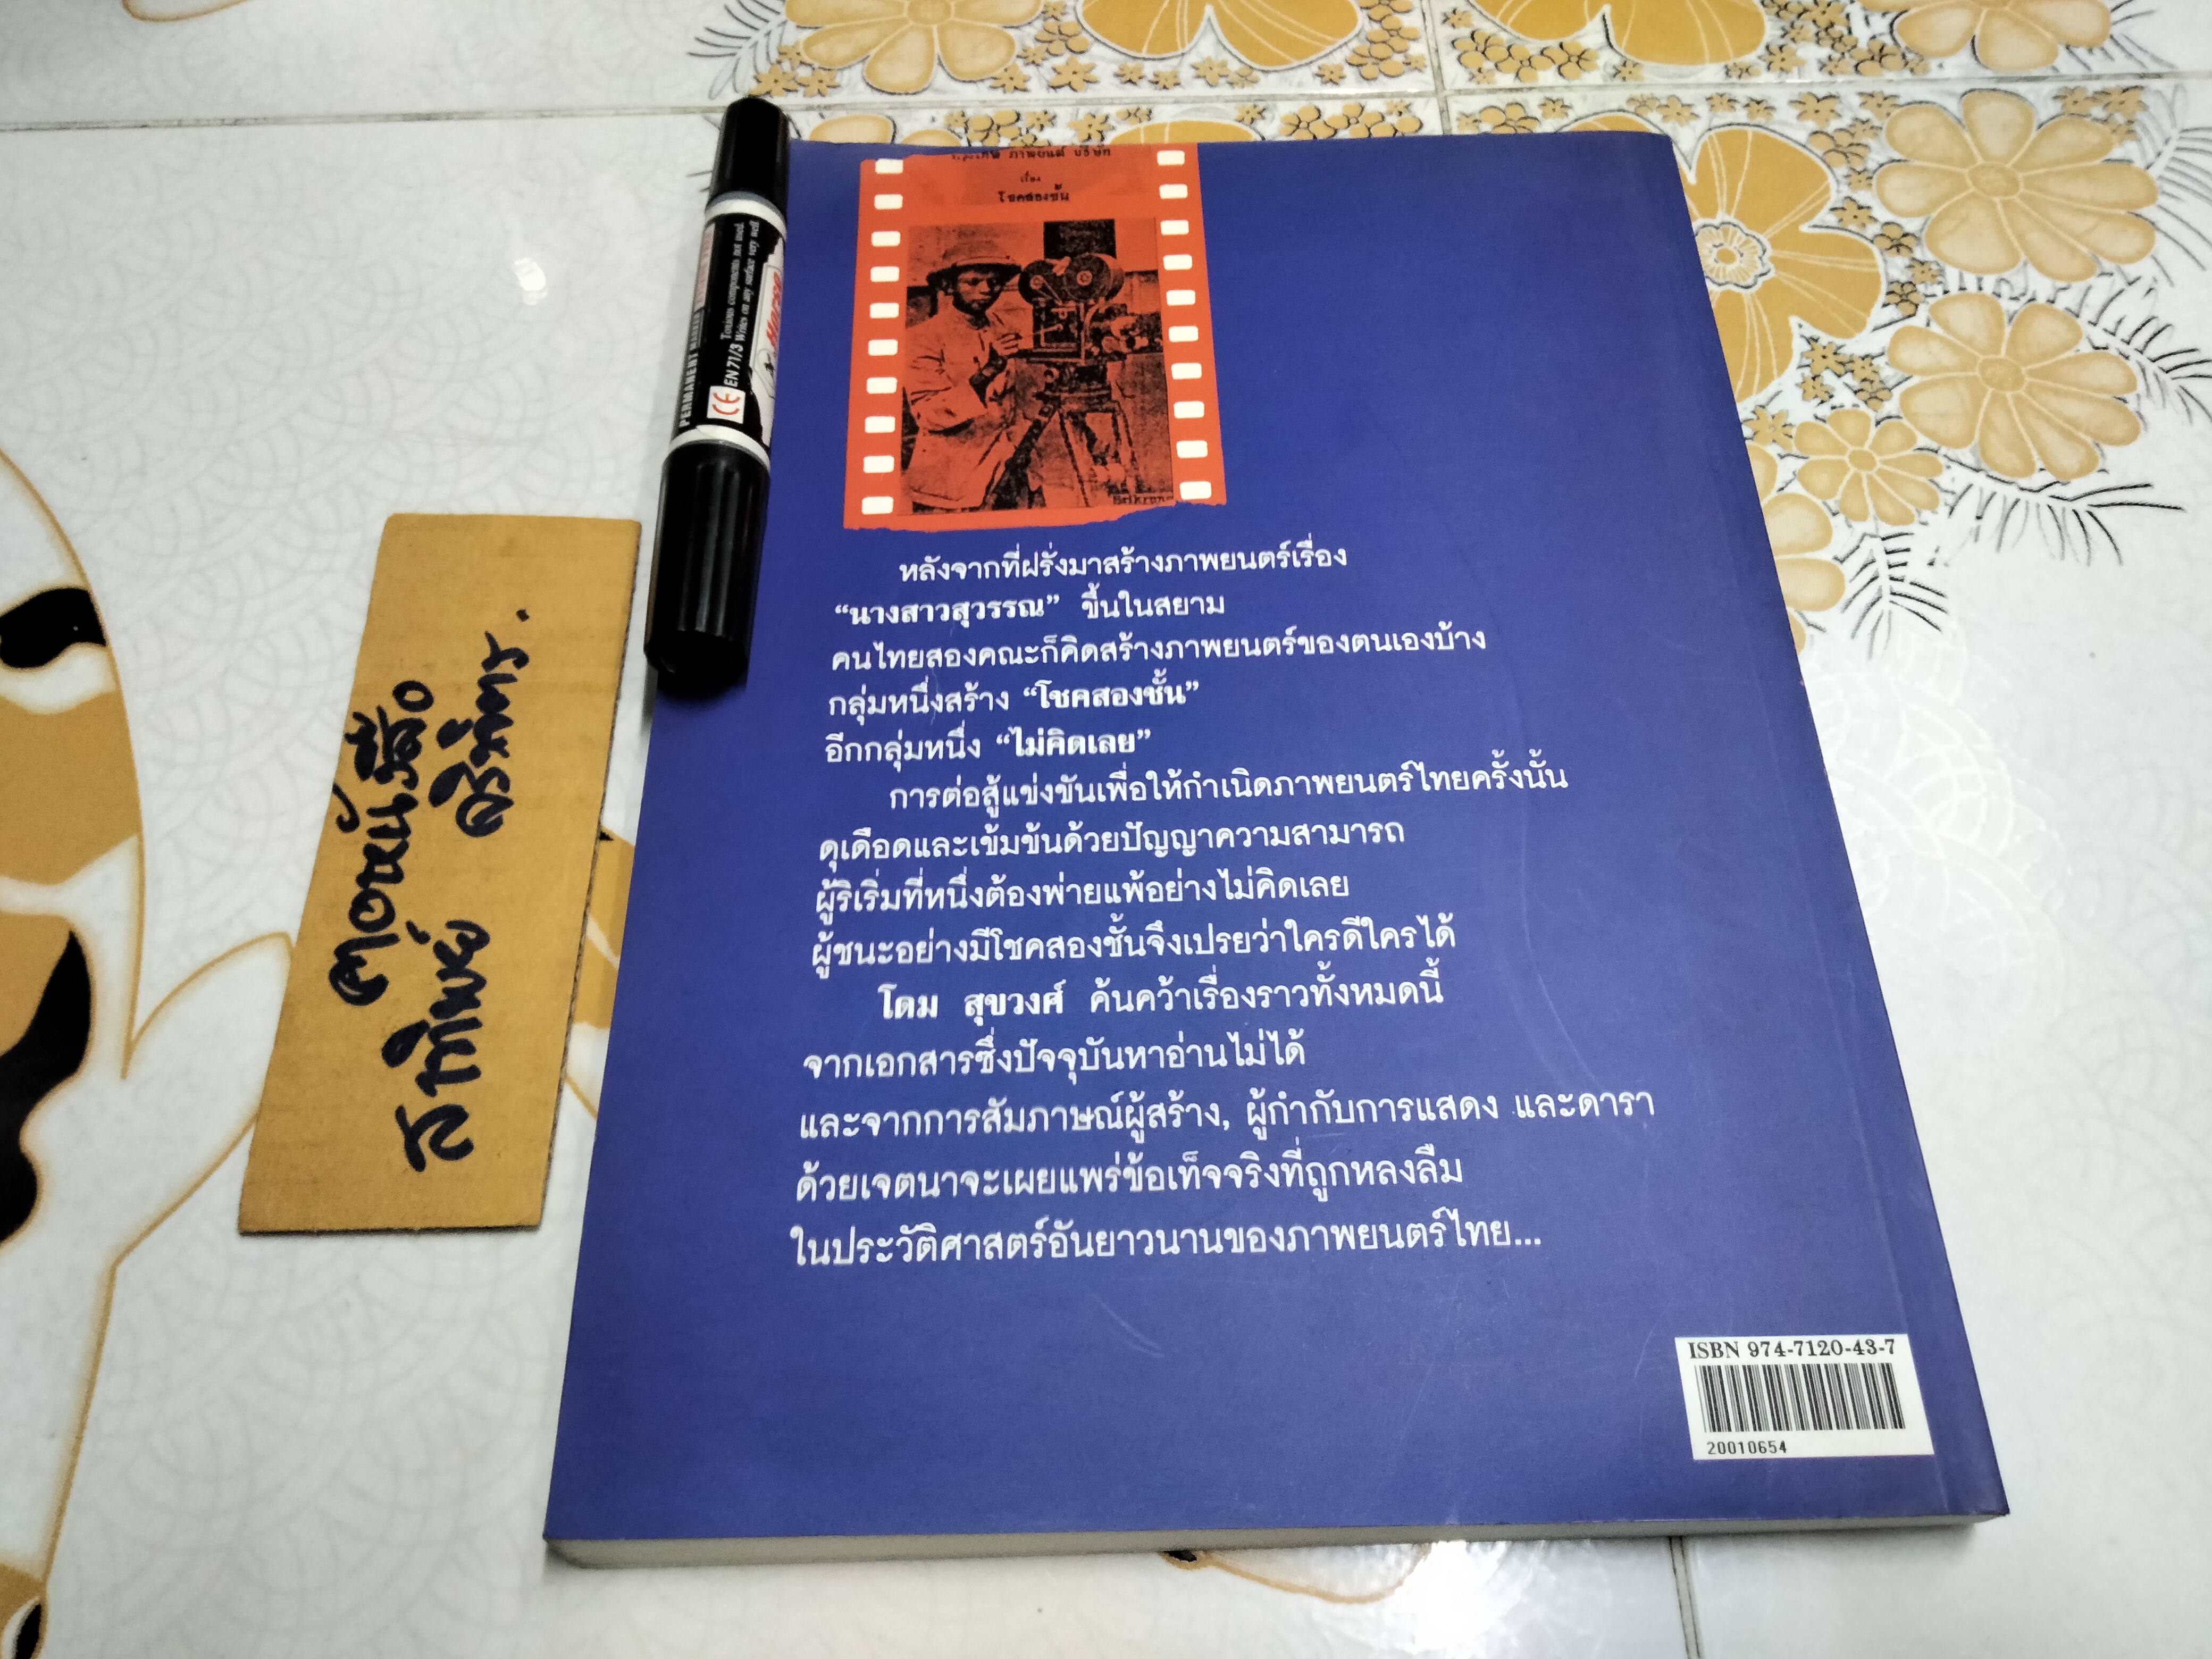 กรุงเทพ ภาพยนต์ บริษัท
เรื่อง
โชคสองชั้น
หลังจากที่ฝรั่งมาสร้างภาพยนตร์เรื่อง
“นางสาวสุวรรณ” ขึ้นในสยาม
คนไทยสองคณะก็คิดสร้างภาพยนตร์ของตนเองบ้าง
กลุ่มหนึ่งสร้าง “โชคสองชั้น”
อีกกลุ่มหนึ่ง “ไม่คิดเลย”
การต่อสู้แข่งขันเพื่อให้กำเนิดภาพยนตร์ไทยครั้งนั้น
ดุเดือดและเข้มข้นด้วยปัญญาความสามารถ
ผู้ริเริ่มที่หนึ่งต้องพ่ายแพ้อย่างไม่คิดเลย
ผู้ชนะอย่างมีโชคสองชั้นจึงเปรยว่าใครดีใครได้
โดม สุขวงศ์ ค้นคว้าเรื่องราวทั้งหมดนี้
จากเอกสารซึ่งปัจจุบันหาอ่านไม่ได้
และจากการสัมภาษณ์ผู้สร้าง, ผู้กำกับการแสดง และดารา
ด้วยเจตนาจะเผยแพร่ข้อเท็จจริงที่ถูกหลงลืม
ในประวัติศาสตร์อันยาวนานของภาพยนตร์ไทย...
ISBN 974-7120-43-7
20010654
PERMANENT MARKER
CE EN 71/3
Toxious components not used.
Writes on any surface very well.
Horse
ตอหนังสือ
สาทิพย์ ศิริพัตร.